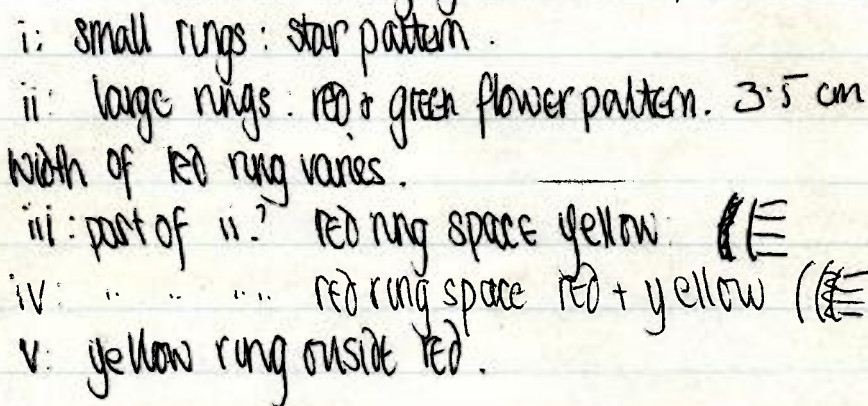 i: small rings: star pattern.
ii: large rings: red + green flower pattern. 3.5 cm
width of red ring varies.
iii: part of ii? red ring space yellow
iv: " " " red ring space red + yellow
v: yellow ring outside red.